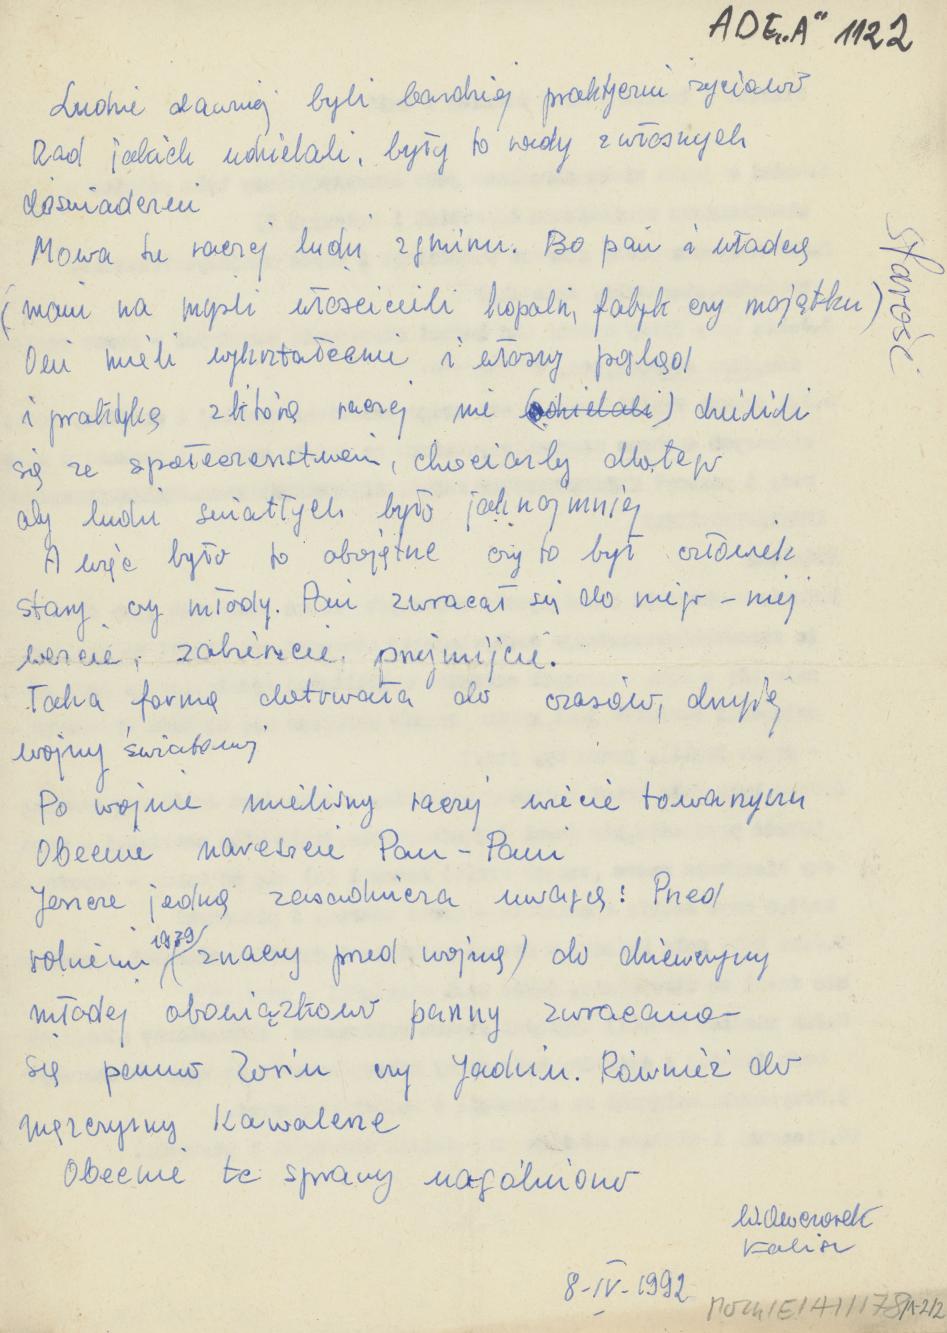 ADE „A" 1122
Ludzie dawniej byli bardziej praktyczni życiowo
Rad jakich udzielali, były to rady z własnych
doświadczeń
Mowa tu raczej ludzi z gminu. Bo pan i władcą
(mam na myśli właścicieli kopalni, fabryk czy majątku)
Oni mieli wykształcenie i własny pogląd
i praktyką z którą raczej nie (udzielali) dzielili
się ze społeczeństwem, chociażby dlatego
aby ludzi światłych było jak najmniej
A więc było to obojętne czy to był człowiek
stary czy młody. Pan zwracał się do niego - niej
weźcie, zabierzcie, przyjmijcie.
Taka forma dotrwała do czasów, drugiej
wojny światowej
Po wojnie mieliśmy raczej wiecie towarzyszu
Obecnie nareszcie Pan - Pani
Jeszcze jedną zasadnicza uwagę: Przed
rokiem 1939 (znaczy przed wojną) do dziewczyny
młodej obowiązkowo panny zwracano-
się panno Zosiu czy Jadziu. Również do
mężczyzny Kawalerze
Obecnie te sprawy uogólniono
starość
Kalisz
8-IV-1992